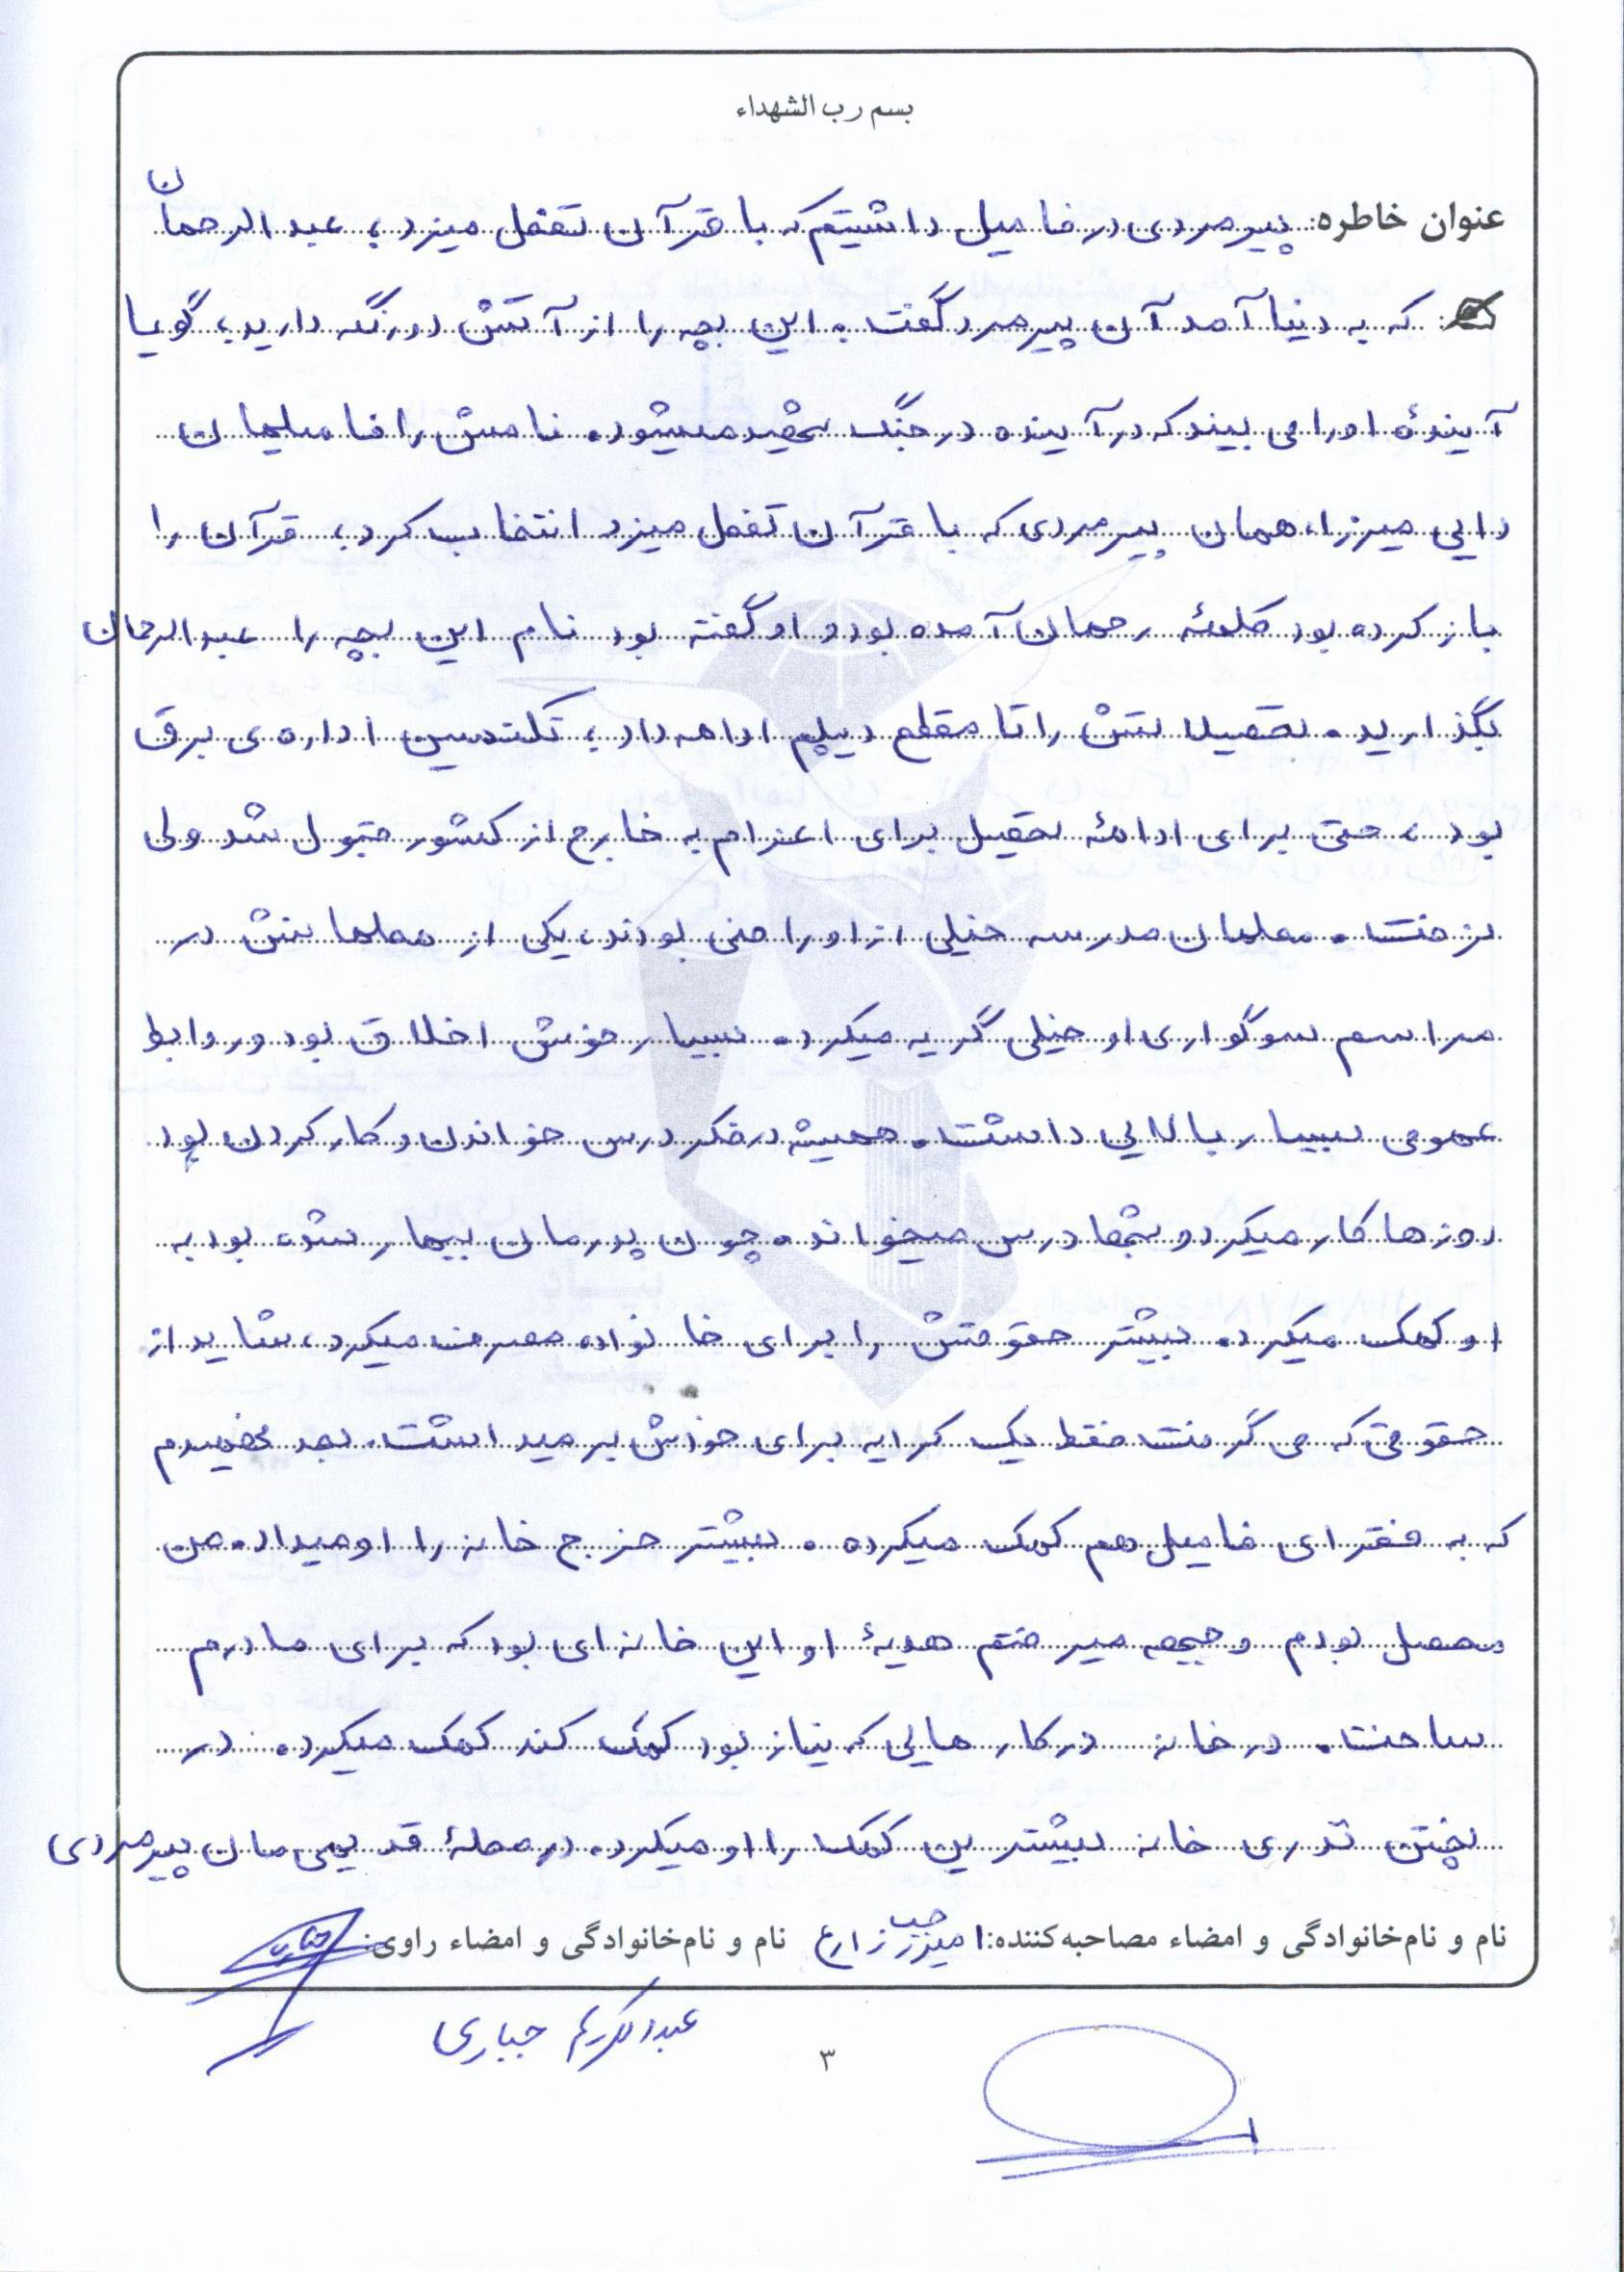 بسم رب الشهداء
عنوان خاطره: پیرمردی در فامیل داشتیم که با قرآن تفعل میزد، عبدالرحمان
که به دنیا آمد آن پیرمرد گفت. این بچه را از آتش دور نگه دارید، گویا
آیندهٔ او را می بیند که در آینده در جنگ شهید میشود. نامش را فامیلمان
دایی میرزا، همان پیرمردی که با قرآن تفعل میزد انتخاب کرد، قرآن را
باز کرده بود کلمهٔ رحمان آمده بود و او گفته بود نام این بچه را عبدالرحمان
بگذارید. تحصیلاتش را تا مقطع دیپلم ادامه داد، تکنسین اداره‌ی برق
بود، حتی برای ادامهٔ تحصیل برای اعزام به خارج از کشور قبول شد ولی
نرفت. معلمان مدرسه خیلی از او راضی بودند، یکی از معلمانش در
مراسم سوگواری او خیلی گریه میکرد. بسیار خوش اخلاق بود و روابط
عمومی بسیار بالایی داشت. همیشه در فکر درس خواندن و کار کردن بود
روزها کار میکرد و شبها درس میخواند. چون پدرمان بیمار شده بود به
او کمک میکرد. بیشتر حقوقش را برای خانواده مصرف میکرد، شاید از
حقوقی که می گرفت فقط یک کرایه برای خودش برمیداشت. بعد فهمیدم
که به فقرای فامیل هم کمک میکرده. بیشتر خرج خانه را او میداد. من
محصل بودم و جبهه میرفتم هدیهٔ او این خانه‌ای بود که برای مادرم
ساخت. در خانه در کارهایی که نیاز بود کمک کند کمک میکرد. در
پختن نذری خانه بیشترین کمک را او میکرد. در محلهٔ قدیمی مان پیرمردی
نام و نام‌خانوادگی و امضاء مصاحبه‌کننده: زارع نام و نام‌خانوادگی و امضاء راوی:
عبدالکریم جباری
۳